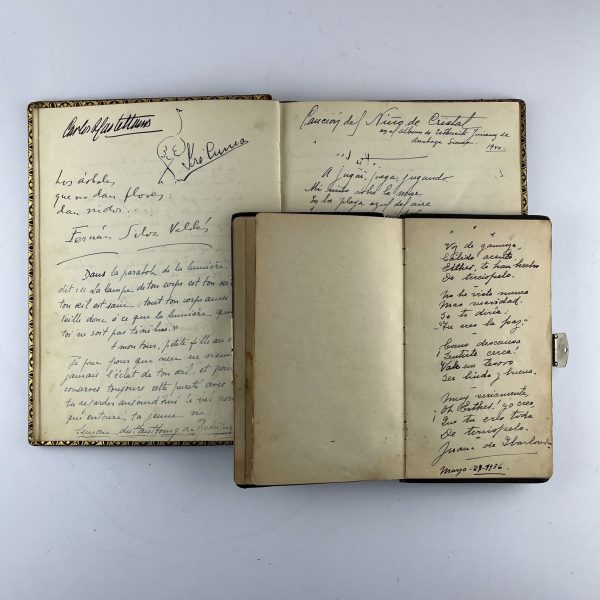 Carlos
Los árboles
que no dan flores:
dan nidos..
Fernán Silva Valdés
Dans la parabole de la lumière
dit: « La lampe de ton corps est ton œil
ton œil est sain, tout ton corps
à ce que la lumière
toi ne soit pas ténèbres »
mon tour, petite fille
Je prie pour que rien ne
jamais l'éclat de ton œil, et
conserves toujours cette pureté avec
tu regardes aujourd'hui le
qui entoure ta jeune vie
Simone
Canción del Niño de Cristal
en el album de Esthercita de
1940
A jugar, juega, jugando
Mi niño sobre la mar
En la playa azul del aire
Voz de gamuza,
Cálido aceite
Esther, te han hecho
De terciopelo.
No he visto nunca
Mas suavidad.
Se te diría:
"Tu eres la paz"
Como descansa
Sentirte cerca!
Vale un tesoro
Ser linda y buena.
Muy seriamente,
¡Oh Esther, yo creo
Que tu eres toda
De terciopelo.
Juana de Ibarbourou
Marzo-29-1936